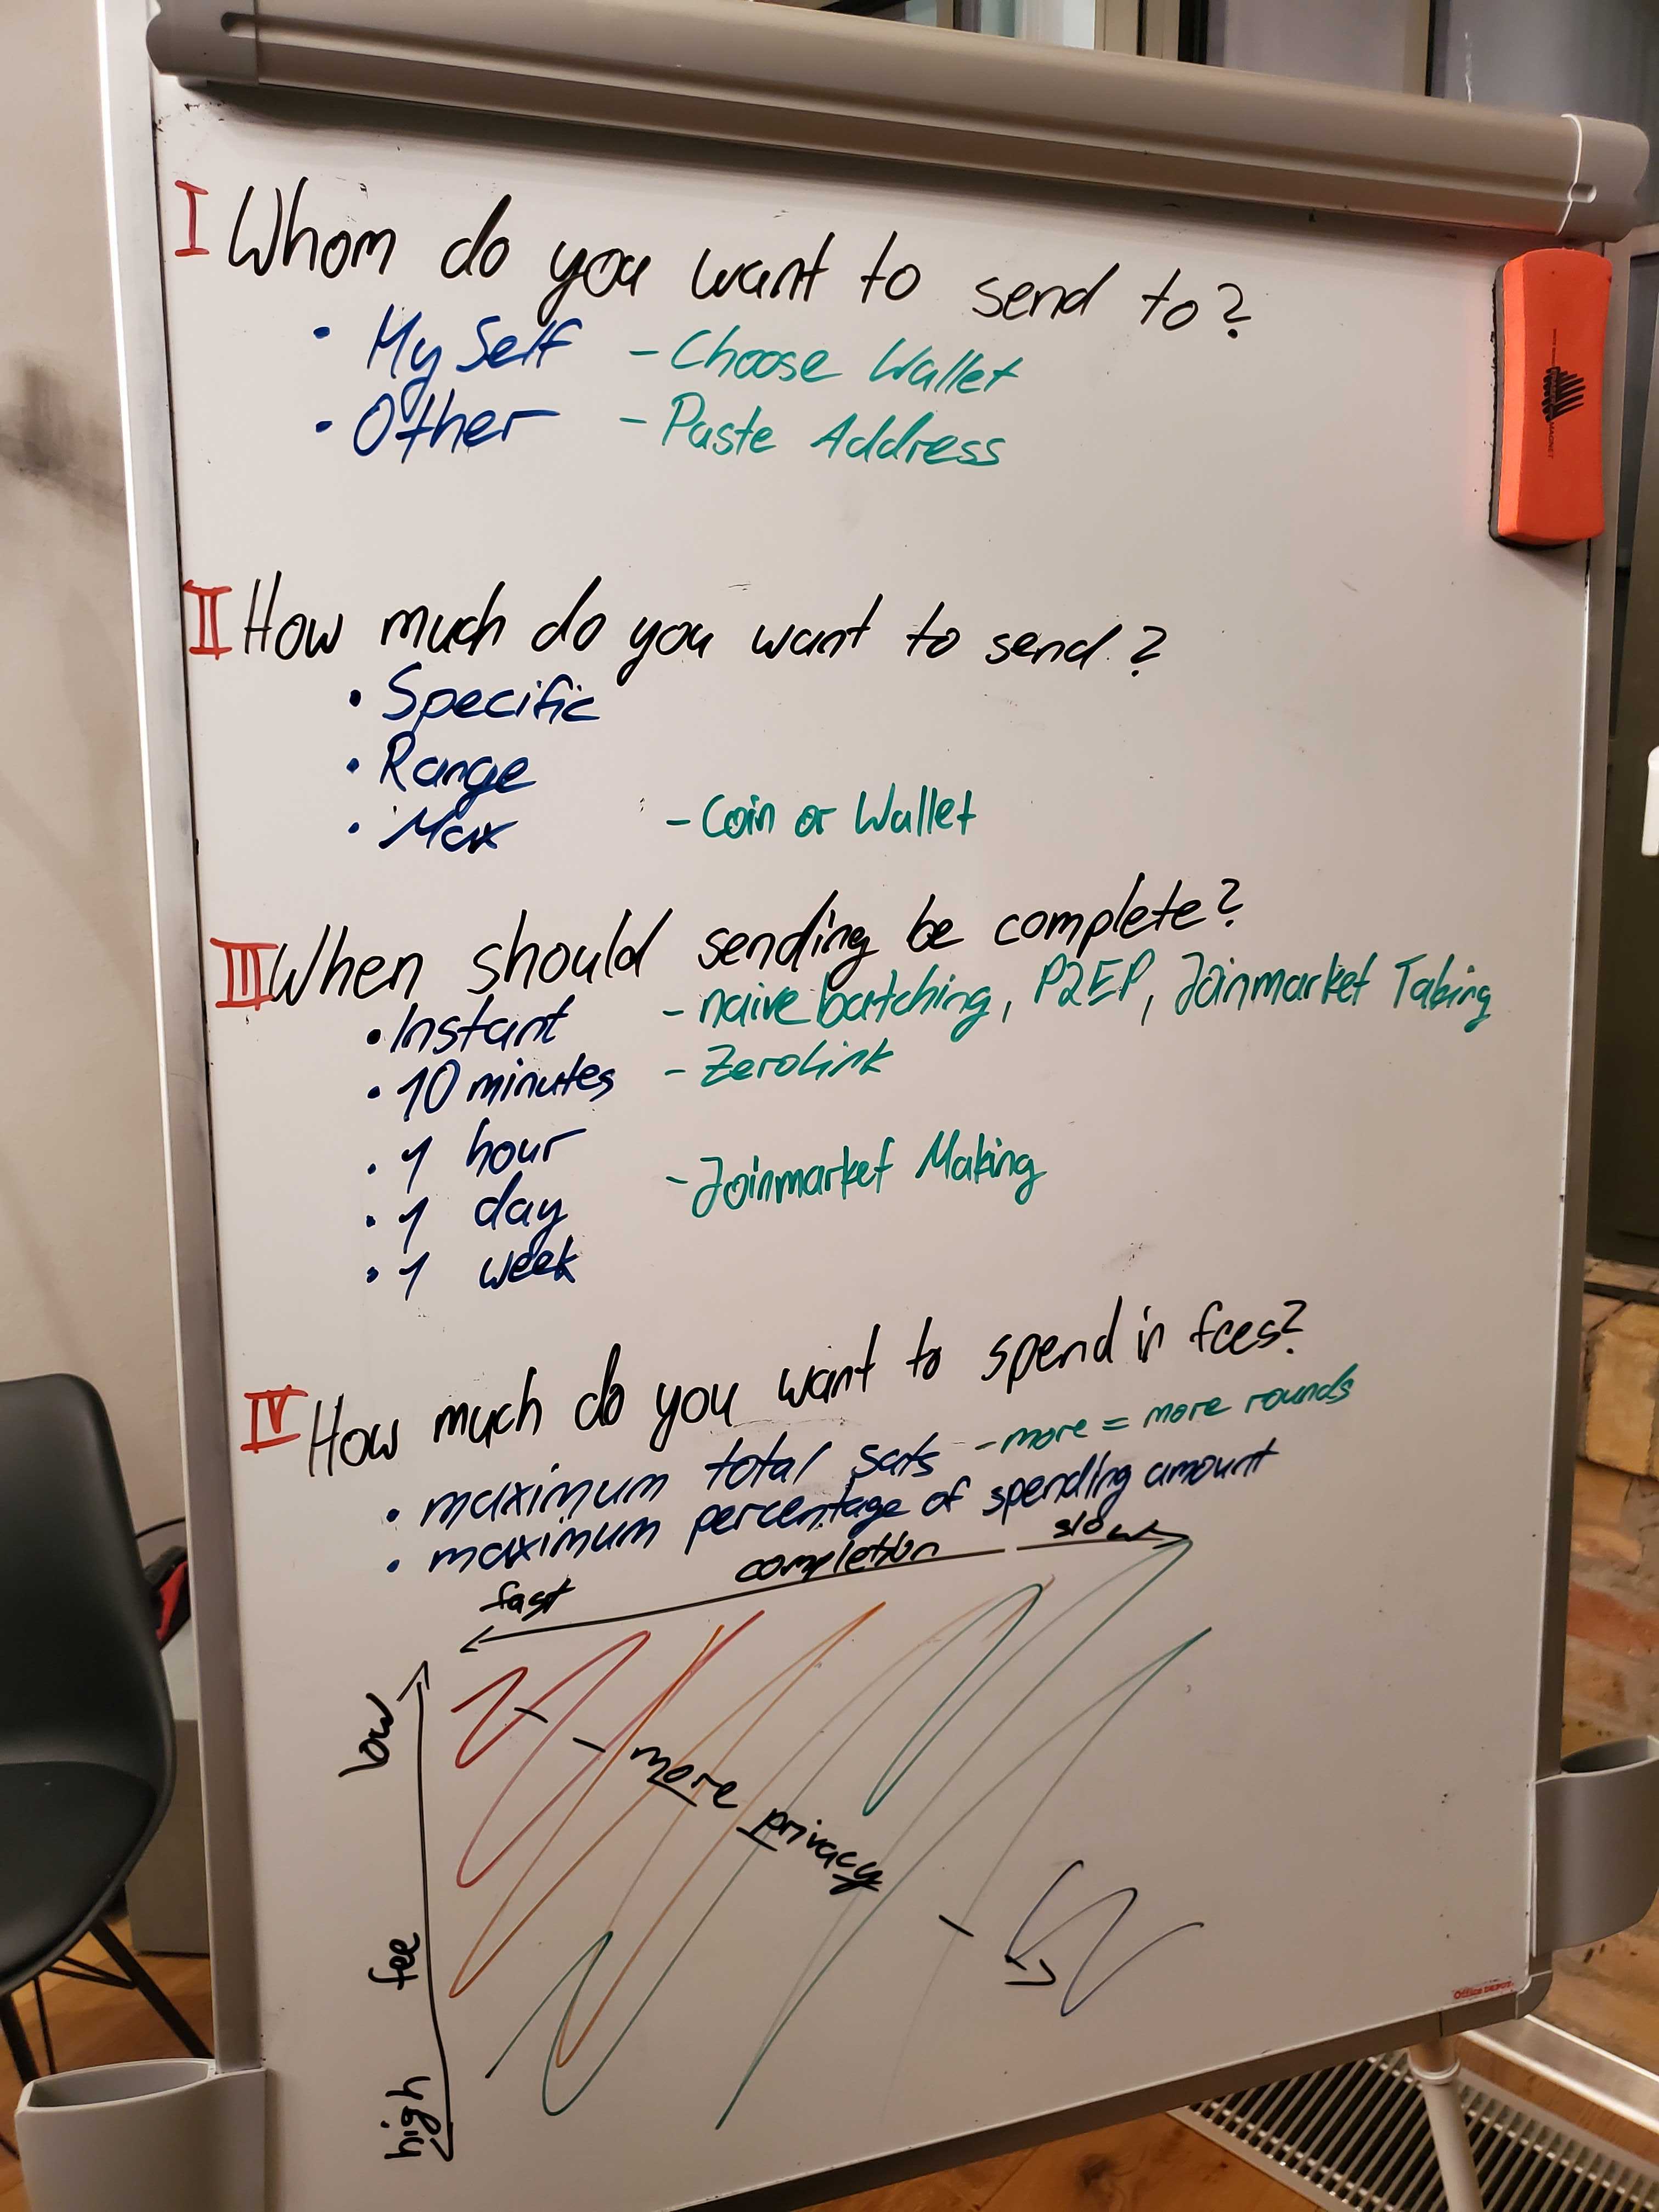 I Whom do you want to send to?
• My Self - Choose Wallet
• Other - Paste Address
II How much do you want to send?
• Specific
• Range
• Max - Coin or Wallet
III When should sending be complete?
• Instant - naive batching, P2EP, Joinmarket Taking
• 10 minutes - ZeroLink
• 1 hour
- Joinmarket Making
• 1 day
• 1 week
IV How much do you want to spend in fees?
• maximum total sats - more = more rounds
• maximum percentage of spending amount
fast completion slow
low fee high
more privacy
Office DEPOT
MAGNET